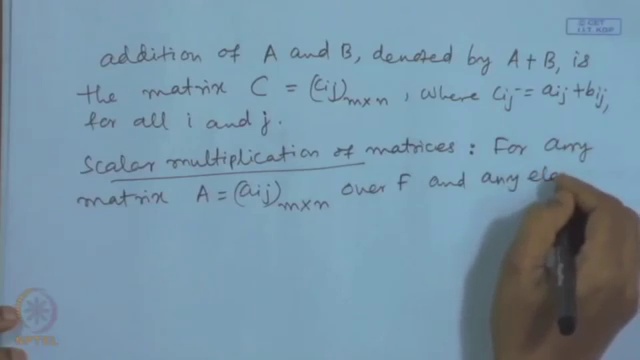 © CET
I.I.T. KGP
addition of A and B, denoted by A + B, is
the matrix C = (cij)m×n, where cij = aij + bij,
for all i and j.
Scalar multiplication of matrices : For any
matrix A = (aij)m×n over F and any ele
NPTEL